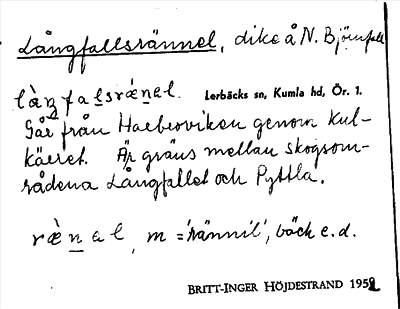 Långfallsrännel, dike å N. Björnfall
làŋfalsrǽnel. Lerbäcks sn, Kumla hd, Ör. 1.
Går från Haeberviken genom Kul-
kärret. Är gräns mellan skogsom-
rådena Långfallet och Pyttla.
rǽnel, m = 'rännil', bäck e.d.
BRITT-INGER HÖJDESTRAND 1952